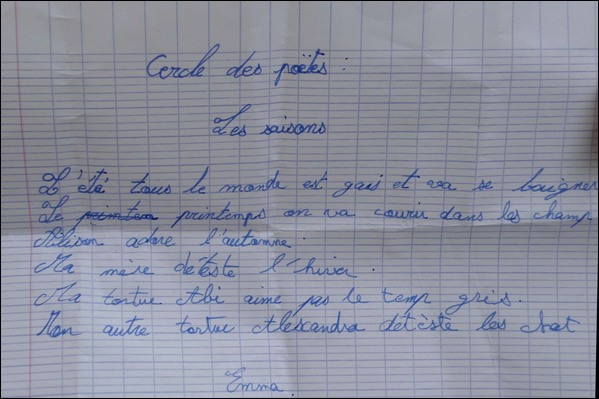 Cercle des poëtes :
Les saisons
L'été tous le monde est gais et va se baigner
Le printen printemps on va courir dans les champ
Alison adore l'automne.
Ma mère déteste l'hiver.
Ma tortue Abi aime pas le temp gris.
Mon autre tortue Alexandra détéste les chat
Emma.